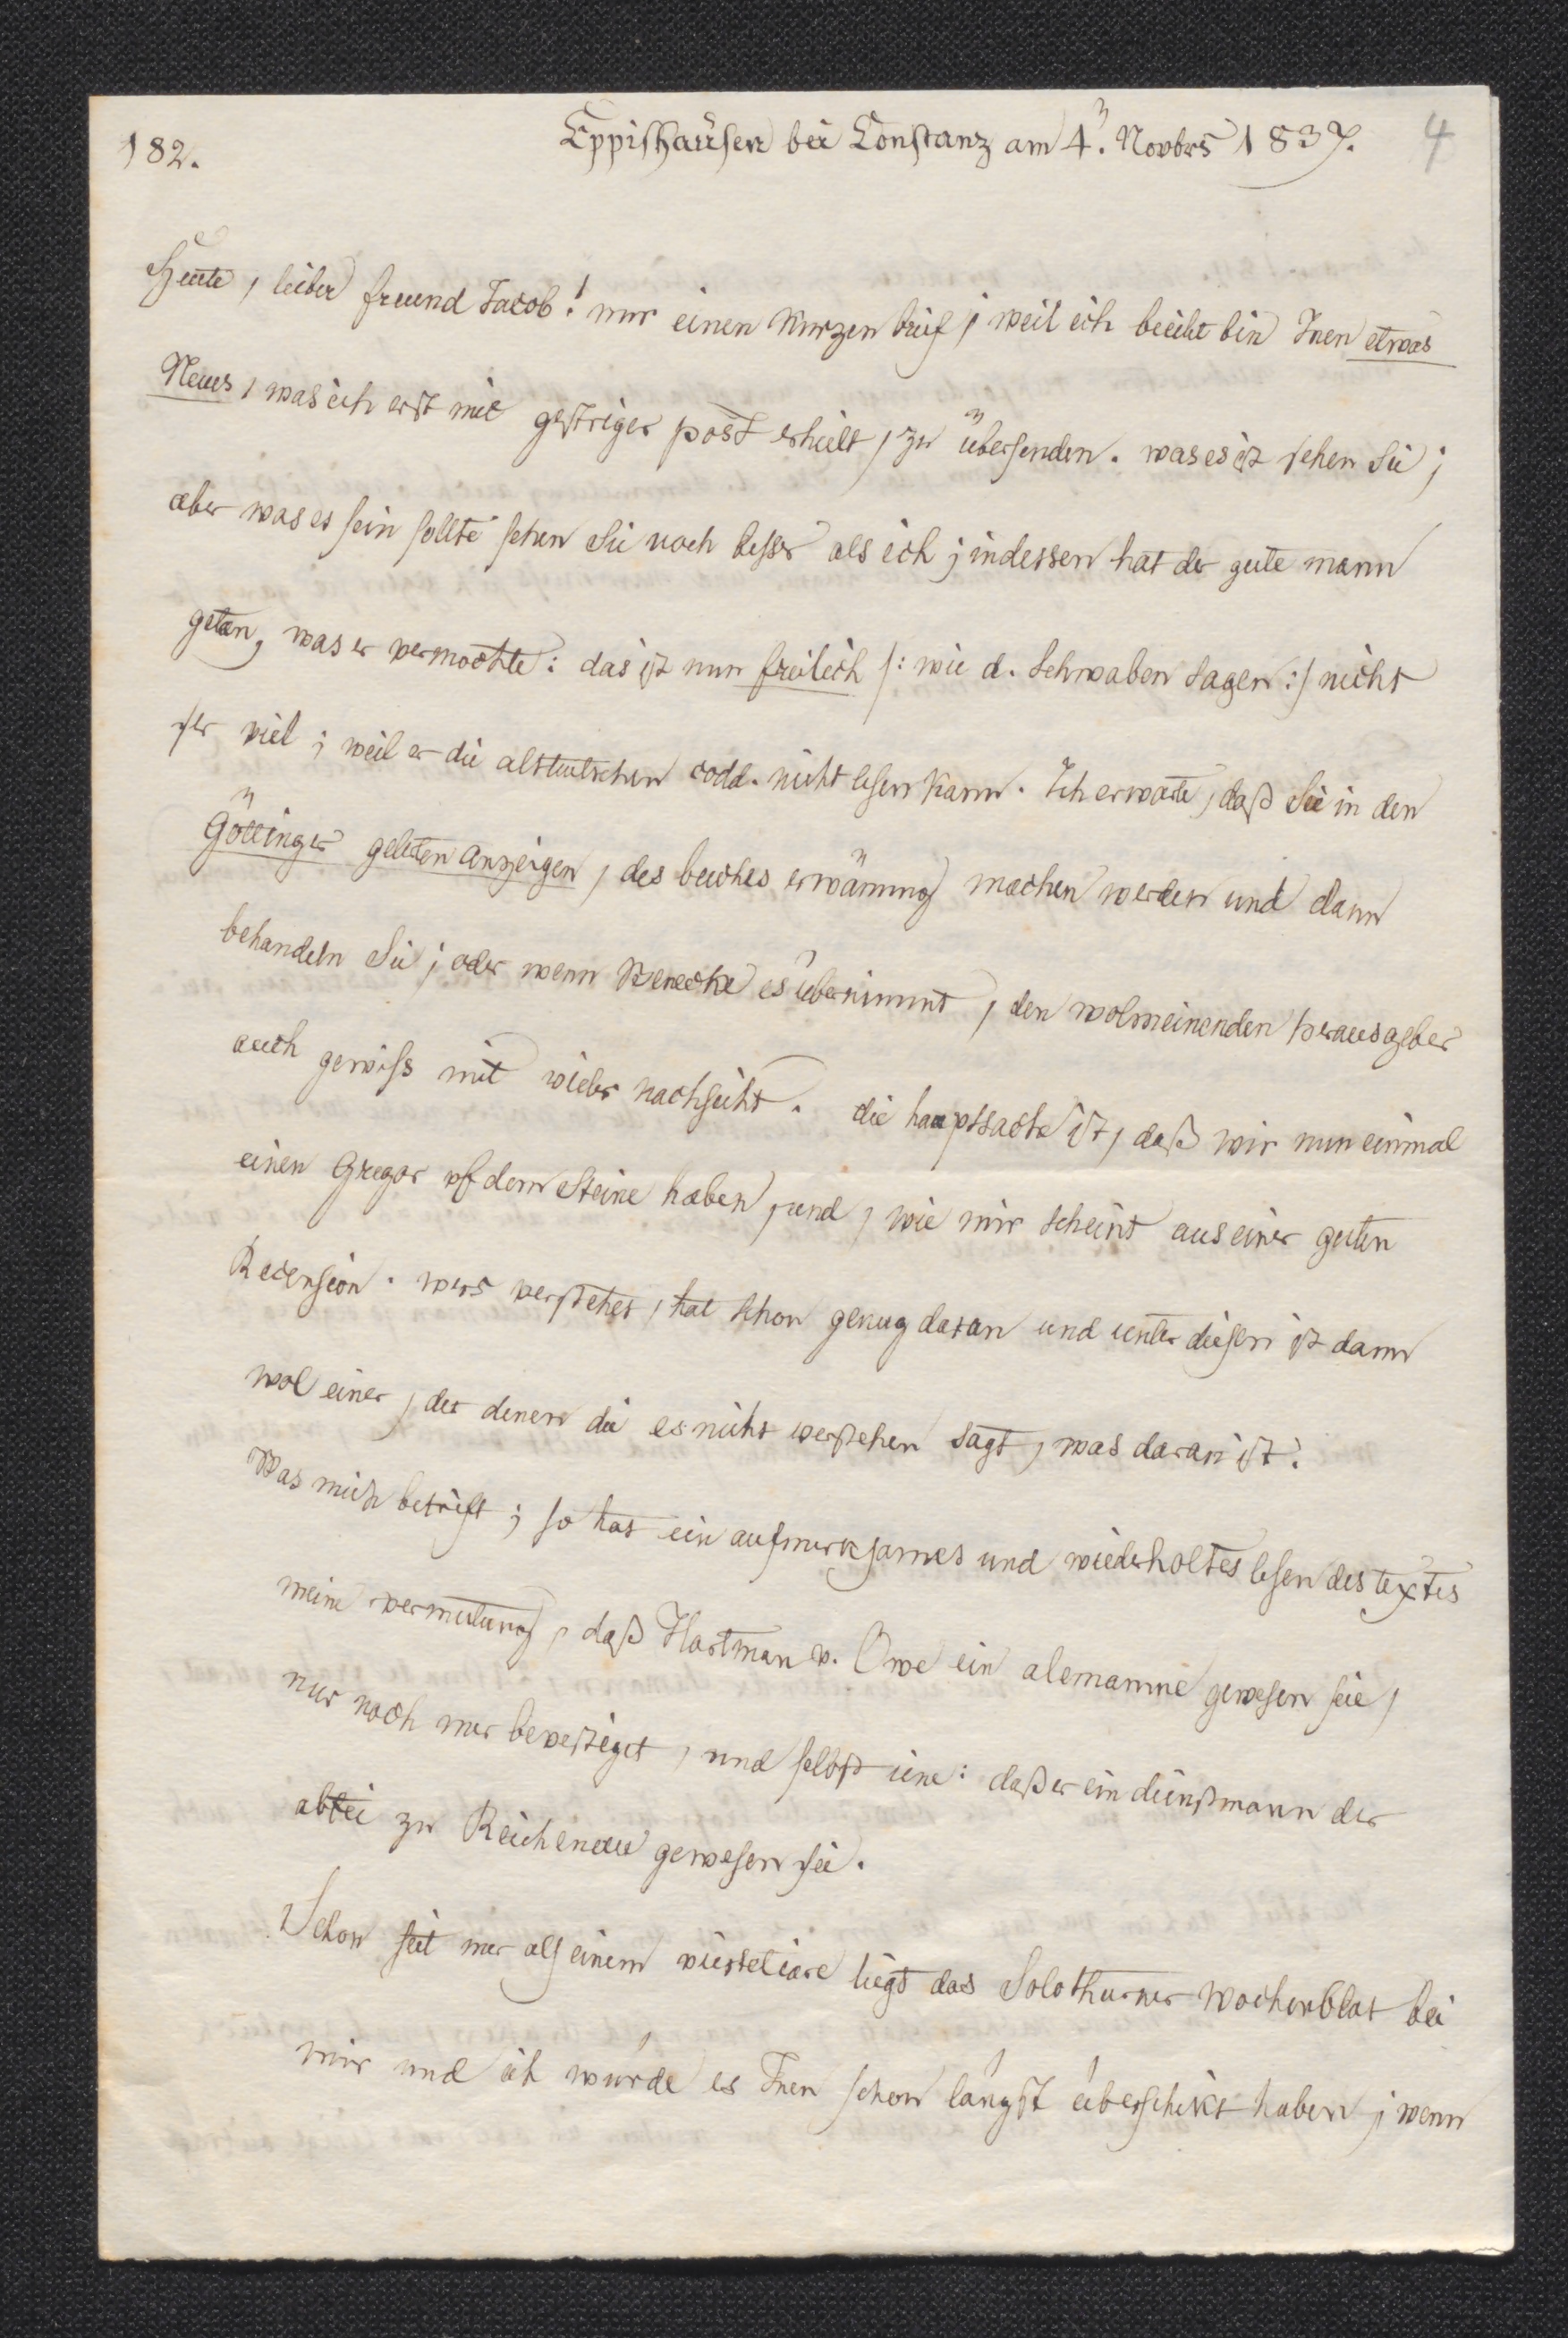 182. Eppishausen bei Constanz am 4. Novbrs 1837. 4
Heute, lieber freund Jacob! nur einen kurzen brief, weil ich beeilt bin Inen etwas
Neues, was ich erst mit gestriger post erhielt, zu übersenden. was es ist sehen Sie;
aber was es sein sollte sehen Sie noch besser als ich; indessen hat der gute mann
getan, was er vermochte: das ist nun freilich /: wie d. Schwaben sagen :/ nicht
ser viel; weil er die altteutschen codd. nicht lesen kann. Ich erwarte, daß Sie in den
Göttinger gelerten anzeigen, des buches erwänung machen werden und dann
behandeln Sie; oder wenn Benecke es übernimmt, den wolmeinenden herausgeber
auch gewiss mit wieler nachsicht. die hauptsache ist, daß wir nun einmal
einen Gregor uf dem Steine haben, und, wie mir scheint aus einer guten
Recension. wers verstehet, hat schon genug daran und unter diesen ist dann
wol einer, der denen die es nicht verstehen sagt, was daran ist.
Was mich betrift; so hat ein aufmerksames und wiederholtes lesen des textes
meine vermutung, daß Hartman v. Owe ein alemanne gewesen seie,
nur noch mer bevestiget, und selbst iene: daß er ein dienstmann der
abtei zu Reichenau gewesen sei.
Schon seit mer als einem vierteliare liegt das Solothurner Wochenblat bei
mir und ich würde es Inen schon längst überschikt haben; wenn